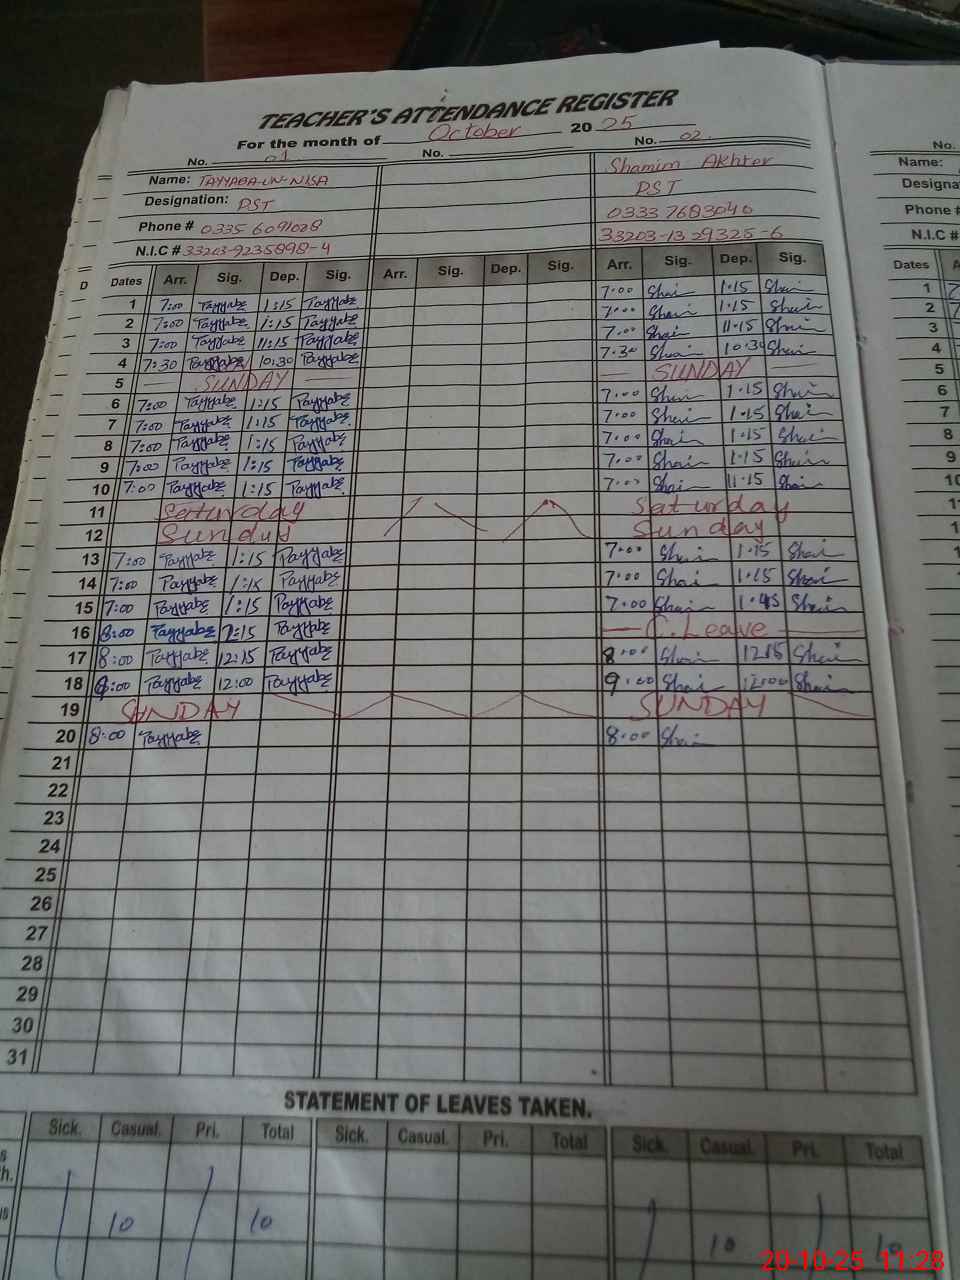 TEACHER'S ATTENDANCE REGISTER
For the month of October 2025
No. 01 No. No. 02
Name: TAYYABA-UN-NISA Shamim Akhter
Designation: PST PST
Phone # 0335 6091028 0333 7683040
N.I.C # 33203-9235898-4 33203-1329325-6
D Dates Arr. Sig. Dep. Sig. Arr. Sig. Dep. Sig. Arr. Sig. Dep. Sig.
1 7:00 Tayyabe 1:15 Tayyabe 7:00 Shai 1:15 Shai
2 7:00 Tayyabe 1:15 Tayyabe 7:00 Shai 1:15 Shai
3 7:00 Tayyabe 11:15 Tayyabe 7:00 Shai 11:15 Shai
4 7:30 Tayyabe 10:30 Tayyabe 7:30 Shai 10:30 Shai
5 SUNDAY SUNDAY
6 7:00 Tayyabe 1:15 Tayyabe 7:00 Shai 1:15 Shai
7 7:00 Tayyabe 1:15 Tayyabe 7:00 Shai 1:15 Shai
8 7:00 Tayyabe 1:15 Tayyabe 7:00 Shai 1:15 Shai
9 7:00 Tayyabe 1:15 Tayyabe 7:00 Shai 1:15 Shai
10 7:00 Tayyabe 1:15 Tayyabe 7:00 Shai 11:15 Shai
11 Saturday Saturday
12 Sunday Sunday
13 7:00 Tayyabe 1:15 Tayyabe 7:00 Shai 1:15 Shai
14 7:00 Tayyabe 1:15 Tayyabe 7:00 Shai 1:15 Shai
15 7:00 Tayyabe 1:15 Tayyabe 7:00 Shai 1:45 Shai
16 8:00 Tayyabe 2:15 Tayyabe C. Leave
17 8:00 Tayyabe 12:15 Tayyabe 8:00 Shai 12:15 Shai
18 9:00 Tayyabe 12:00 Tayyabe 9:00 Shai 12:00 Shai
19 SUNDAY SUNDAY
20 8:00 Tayyabe 8:00 Shai
21
22
23
24
25
26
27
28
29
30
31
STATEMENT OF LEAVES TAKEN.
Sick. Casual. Pri. Total Sick. Casual. Pri. Total Sick. Casual. Pri. Total
10 10 10 10
No.
Name:
Phone #
N.I.C #
Dates
1
2
3
4
5
6
7
8
9
10
20-10-25 11:28